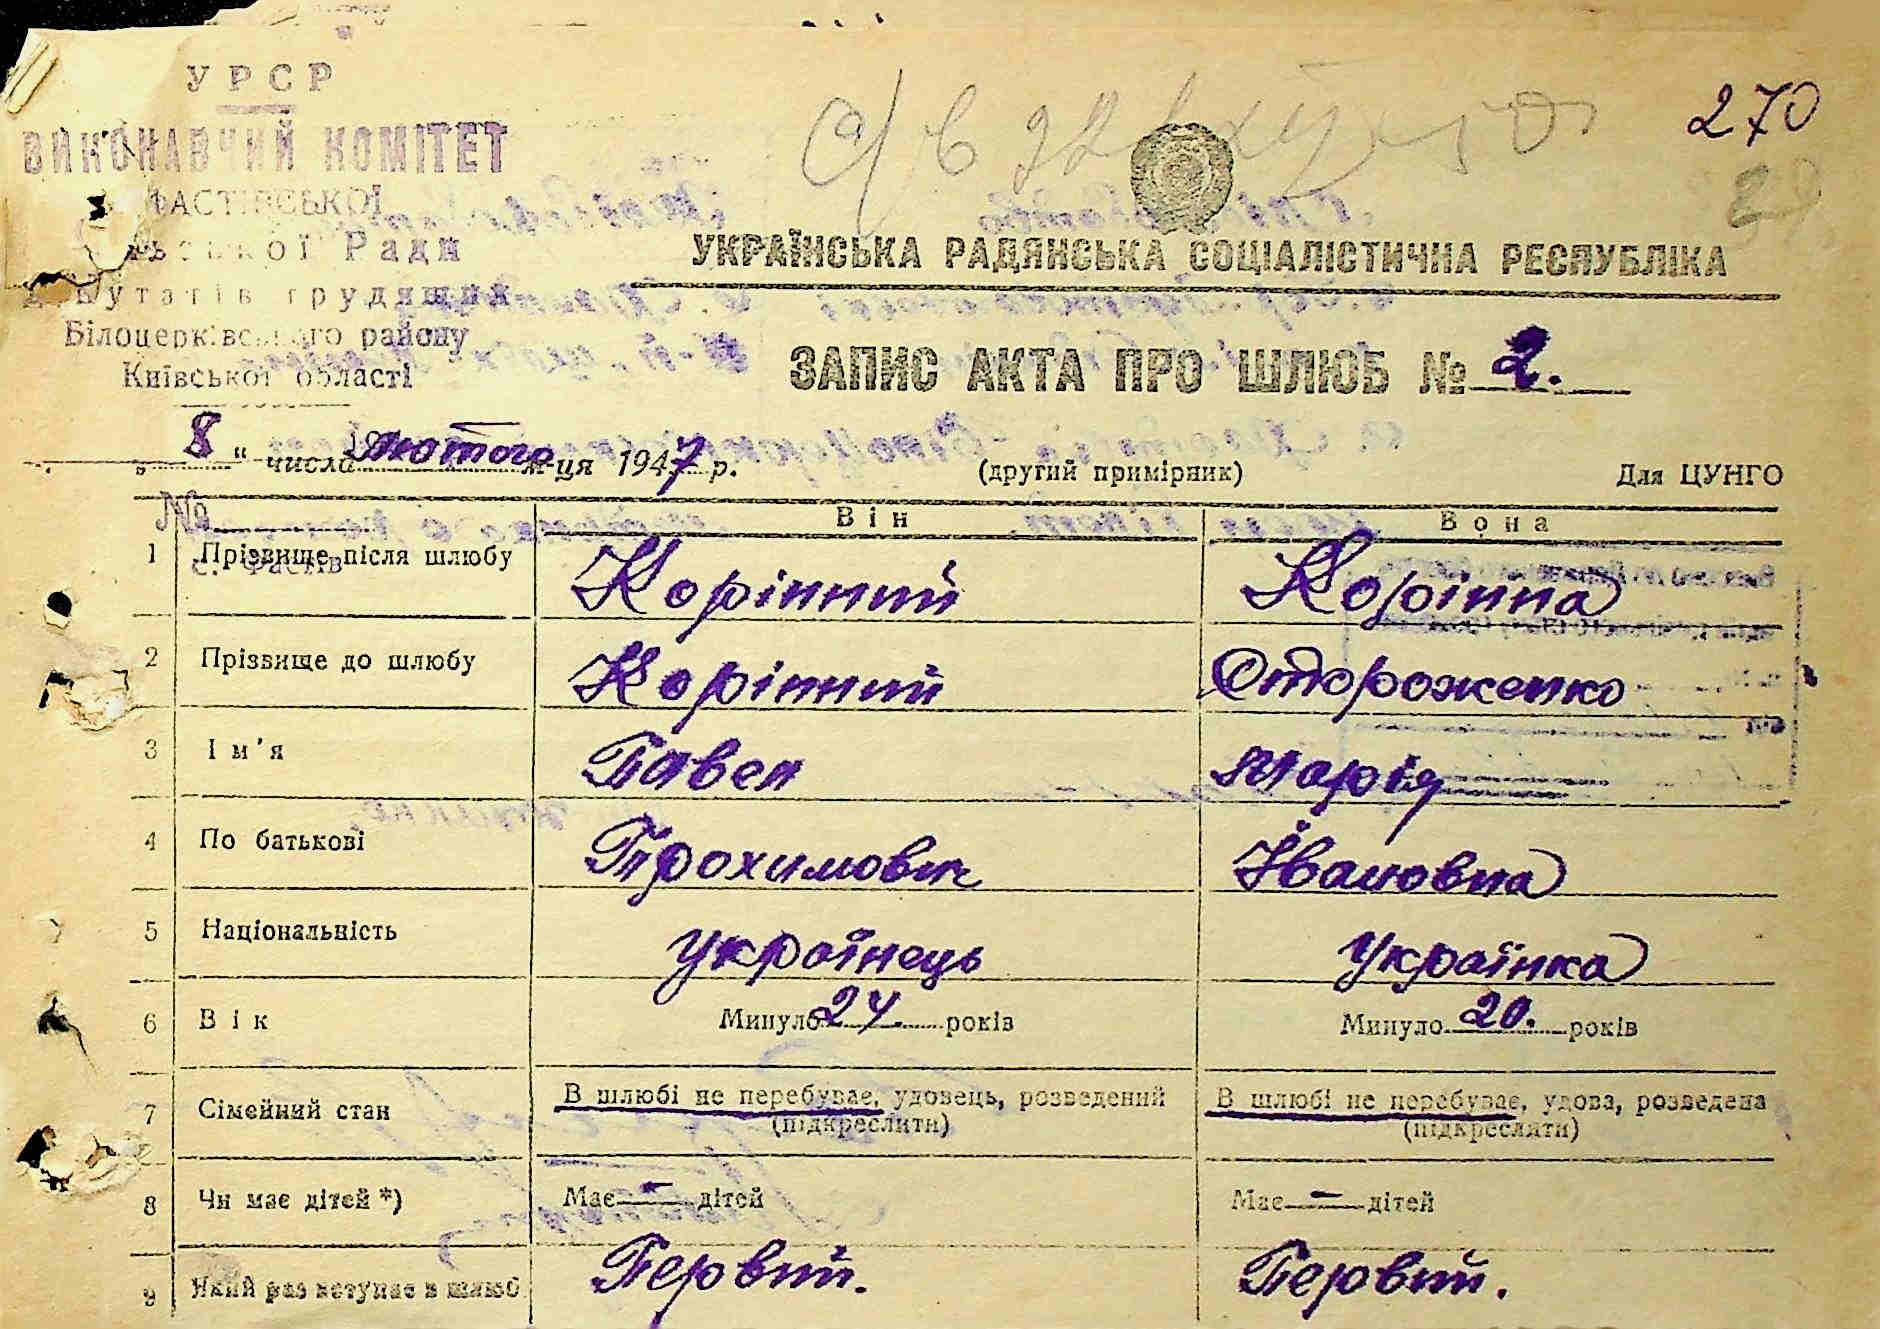 УРСР
ВИКОНАВЧИЙ КОМІТЕТ
ФАСТІВСЬКОЇ
Ради
депутатів трудящих
Білоцерківського району
Київської області
№
с. Фастів
270
УКРАЇНСЬКА РАДЯНСЬКА СОЦІАЛІСТИЧНА РЕСПУБЛІКА
ЗАПИС АКТА ПРО ШЛЮБ № 2.
„ 8 “ числа лютого м-ця 1947 р. (другий примірник) Для ЦУНГО
Він Вона
1 Прізвище після шлюбу Корінний Корінна
2 Прізвище до шлюбу Корінний Стороженко
3 Ім'я Павел Марія
4 По батькові Трохимович Івановна
5 Національність Українець Українка
6 Вік Минуло 24 років Минуло 20. років
7 Сімейний стан В шлюбі не перебуває, удовець, розведений В шлюбі не перебуває, удова, розведена
(підкреслити) (підкреслити)
8 Чи має дітей *) Має - дітей Має - дітей
9 Який раз вступає в шлюб Первий. Первий.